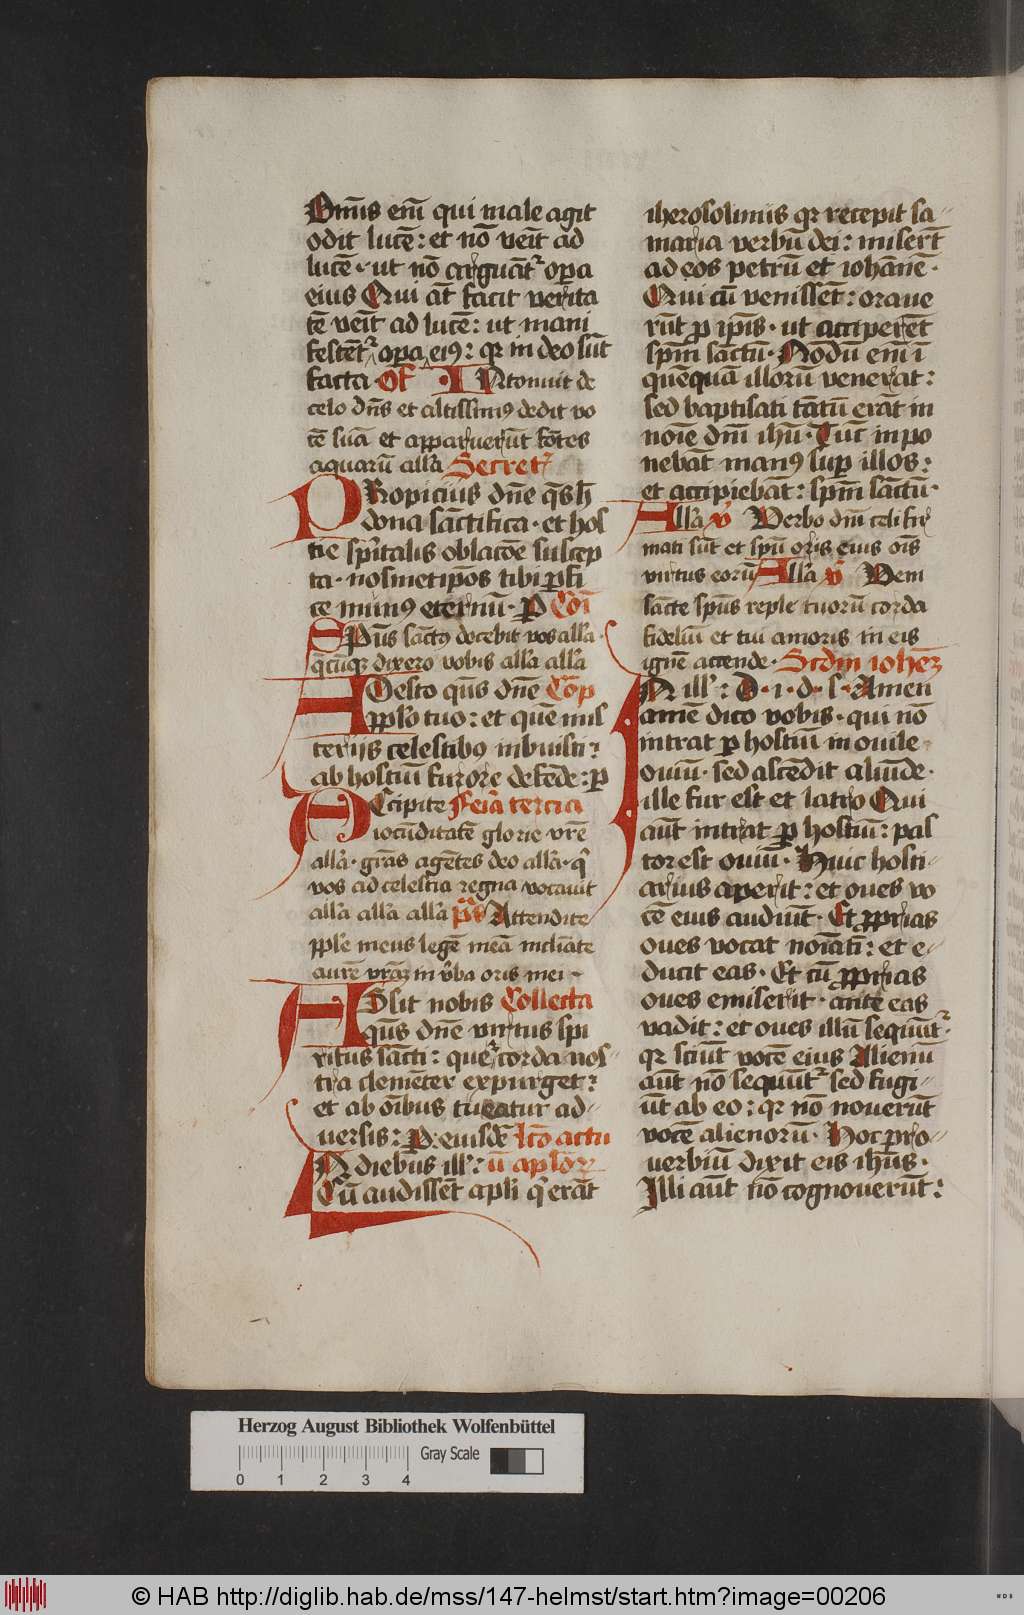 Om̄s em̄ qui male agit
odit lucē: et nō veīt ad
lucē· ut nō arguāt᷑ oꝑa
eius Qui aūt facit verita
tē veīt ad lucē: ut mani
festēt᷑ oꝑa eiꝰ: qꝛ in deo sūt
facta· Of · INtonuit de
celo dn̄s et altissimꝰ dedit vo
cē suā et apparuerūt fōtes
aquarū all̓a Secret᷑
PRopicius dn̄e qs̄
dona sāctifica· et hos
tie sp̄italis oblacōe suscep
ta· nosmetip̄os tibi ꝑfi
ce munꝰ eternū· P Co̅i
Sp̄us sāctꝰ docebit vos all̓a·
q̄cūqꝫ dixero vobis all̓a all̓a
ADesto qs̄ dn̄e Co̅p
pp̄lo tuo: et quē mis
terijs celestibꝰ inbuisti:
ab hostiū furore defēde: ꝑ
ACcipite Fer̓a tercia
iocūditatē glorie vr̄e
all̓a· gr̄as agētes deo all̓a· q̓
vos ad celestia regna vocauit
all̓a all̓a all̓a p̄s Attendite
pp̄le meus legē meā inclīate
aurē vr̄aꝫ in v̓ba oris mei·
ASsit nobis Collecta
qs̄ dn̄e virtus spi
ritus sācti: que᷑ corda nos
tra clemēter expurget:
et ab oībus tueatur ad-
uersis: P· eiusdē lc̄o actu
IN diebus ill̓: ū apl̄oꝝ
Cū audissēt apl̄i q̓ erāt
iherosolimis qꝛ recepit sa-
maria verbū dei: miserūt
ad eos petrū et iohānē·
Qui cū venissēt: oraue
rūt ꝓ ip̄is· ut acciperēt
sp̄m sāctū· Nōdū em̄ ī
quēquā illorū venerat:
sed baptisati tātū erāt in
noīe dn̄i ihū· Tūc inpo
nebāt manꝰ suꝑ illos:
et accipiebāt: sp̄m sāctū·
All̓a v̓ Verbo dn̄i celi fir
mati sūt et spū oris eius oīs
virtus eorū All̓a v̓ Veni
sācte sp̄us reple tuorū corda
fideliū et tui amoris in eis
ignē accende· Scdm̄ iohēꝫ
IN ill̓: D· i· d· s· Amen
amē dico vobis· qui nō
intrat ꝑ hostiū in ouile
ouiū· sed ascēdit aliūde·
ille fur est et latro Qui
aūt intrat ꝑ hostiū: pas
tor est ouiū· Huic hosti-
arius aperit: et oues vo
cē eius audiūt· Et ꝓprias
oues vocat noīatī: et e-
ducit eas· Et cū ꝓprias
oues emiserit· ante eas
vadit: et oues illū sequūt᷑·
qꝛ sciūt vocē eius Alienū
aūt nō sequūt᷑ sed fugi-
ūt ab eo: qꝛ nō nouerūt
vocē alienorū· Hoc ꝓ-
uerbiū dixit eis ihūs·
Illi aūt nō cognouerūt:
Herzog August Bibliothek Wolfenbüttel
Gray Scale
0 1 2 3 4
© HAB http://diglib.hab.de/mss/147-helmst/start.htm?image=00206